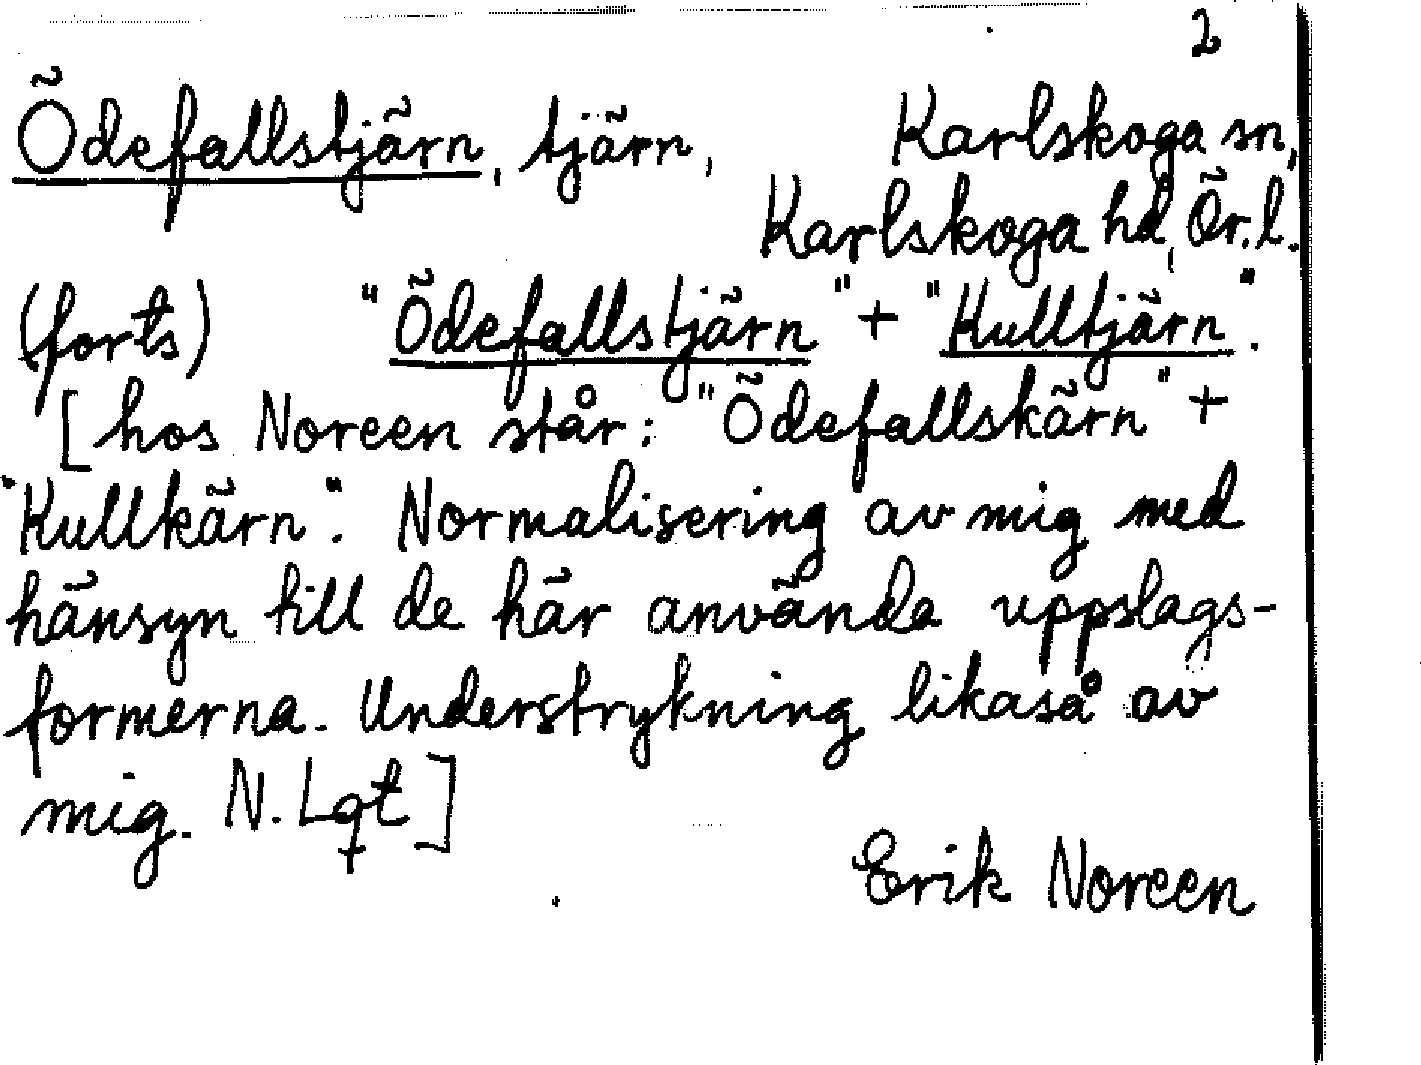 2
Ödefallstjärn, tjärn, Karlskoga sn,
Karlskoga hd, Ör.l.
(forts) "Ödefallstjärn" + "Kulltjärn".
[hos Noreen står: "Ödefallskärn" +
"Kullkärn". Normalisering av mig med
hänsyn till de här använda uppslags-
formerna. Understrykning likaså av
mig. N. Lqt]
Erik Noreen